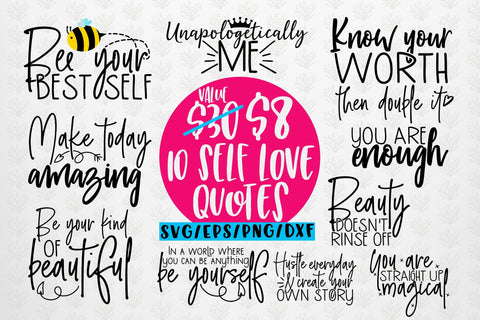 Bee your
BEST SELF
Unapologetically
ME
Know your
WORTH
then double it
VALUE
$30 $8
10 SELF LOVE
QUOTES
SVG/EPS/PNG/DXF
Make today
amazing
YOU ARE
enough
Be your kind
OF
beautiful
IN A WORLD WHERE
YOU CAN BE ANYTHING
be yourself
Hustle everyday
& create your
OWN STORY
Beauty
DOESN'T
RINSE OFF
You are
STRAIGHT UP
magical